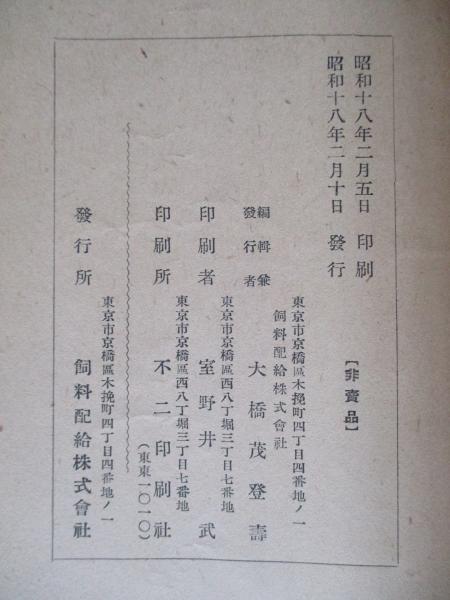 昭和十八年二月五日 印刷
昭和十八年二月十日 發行
【非賣品】
東京市京橋區木挽町四丁目四番地ノ一
飼料配給株式會社
編輯兼
發行者 大橋茂登壽
東京市京橋區西八丁堀三丁目七番地
印刷者 室野井武
東京市京橋區西八丁堀三丁目七番地
印刷所 不二印刷社
(東東一〇一〇)
東京市京橋區木挽町四丁目四番地ノ一
發行所 飼料配給株式會社